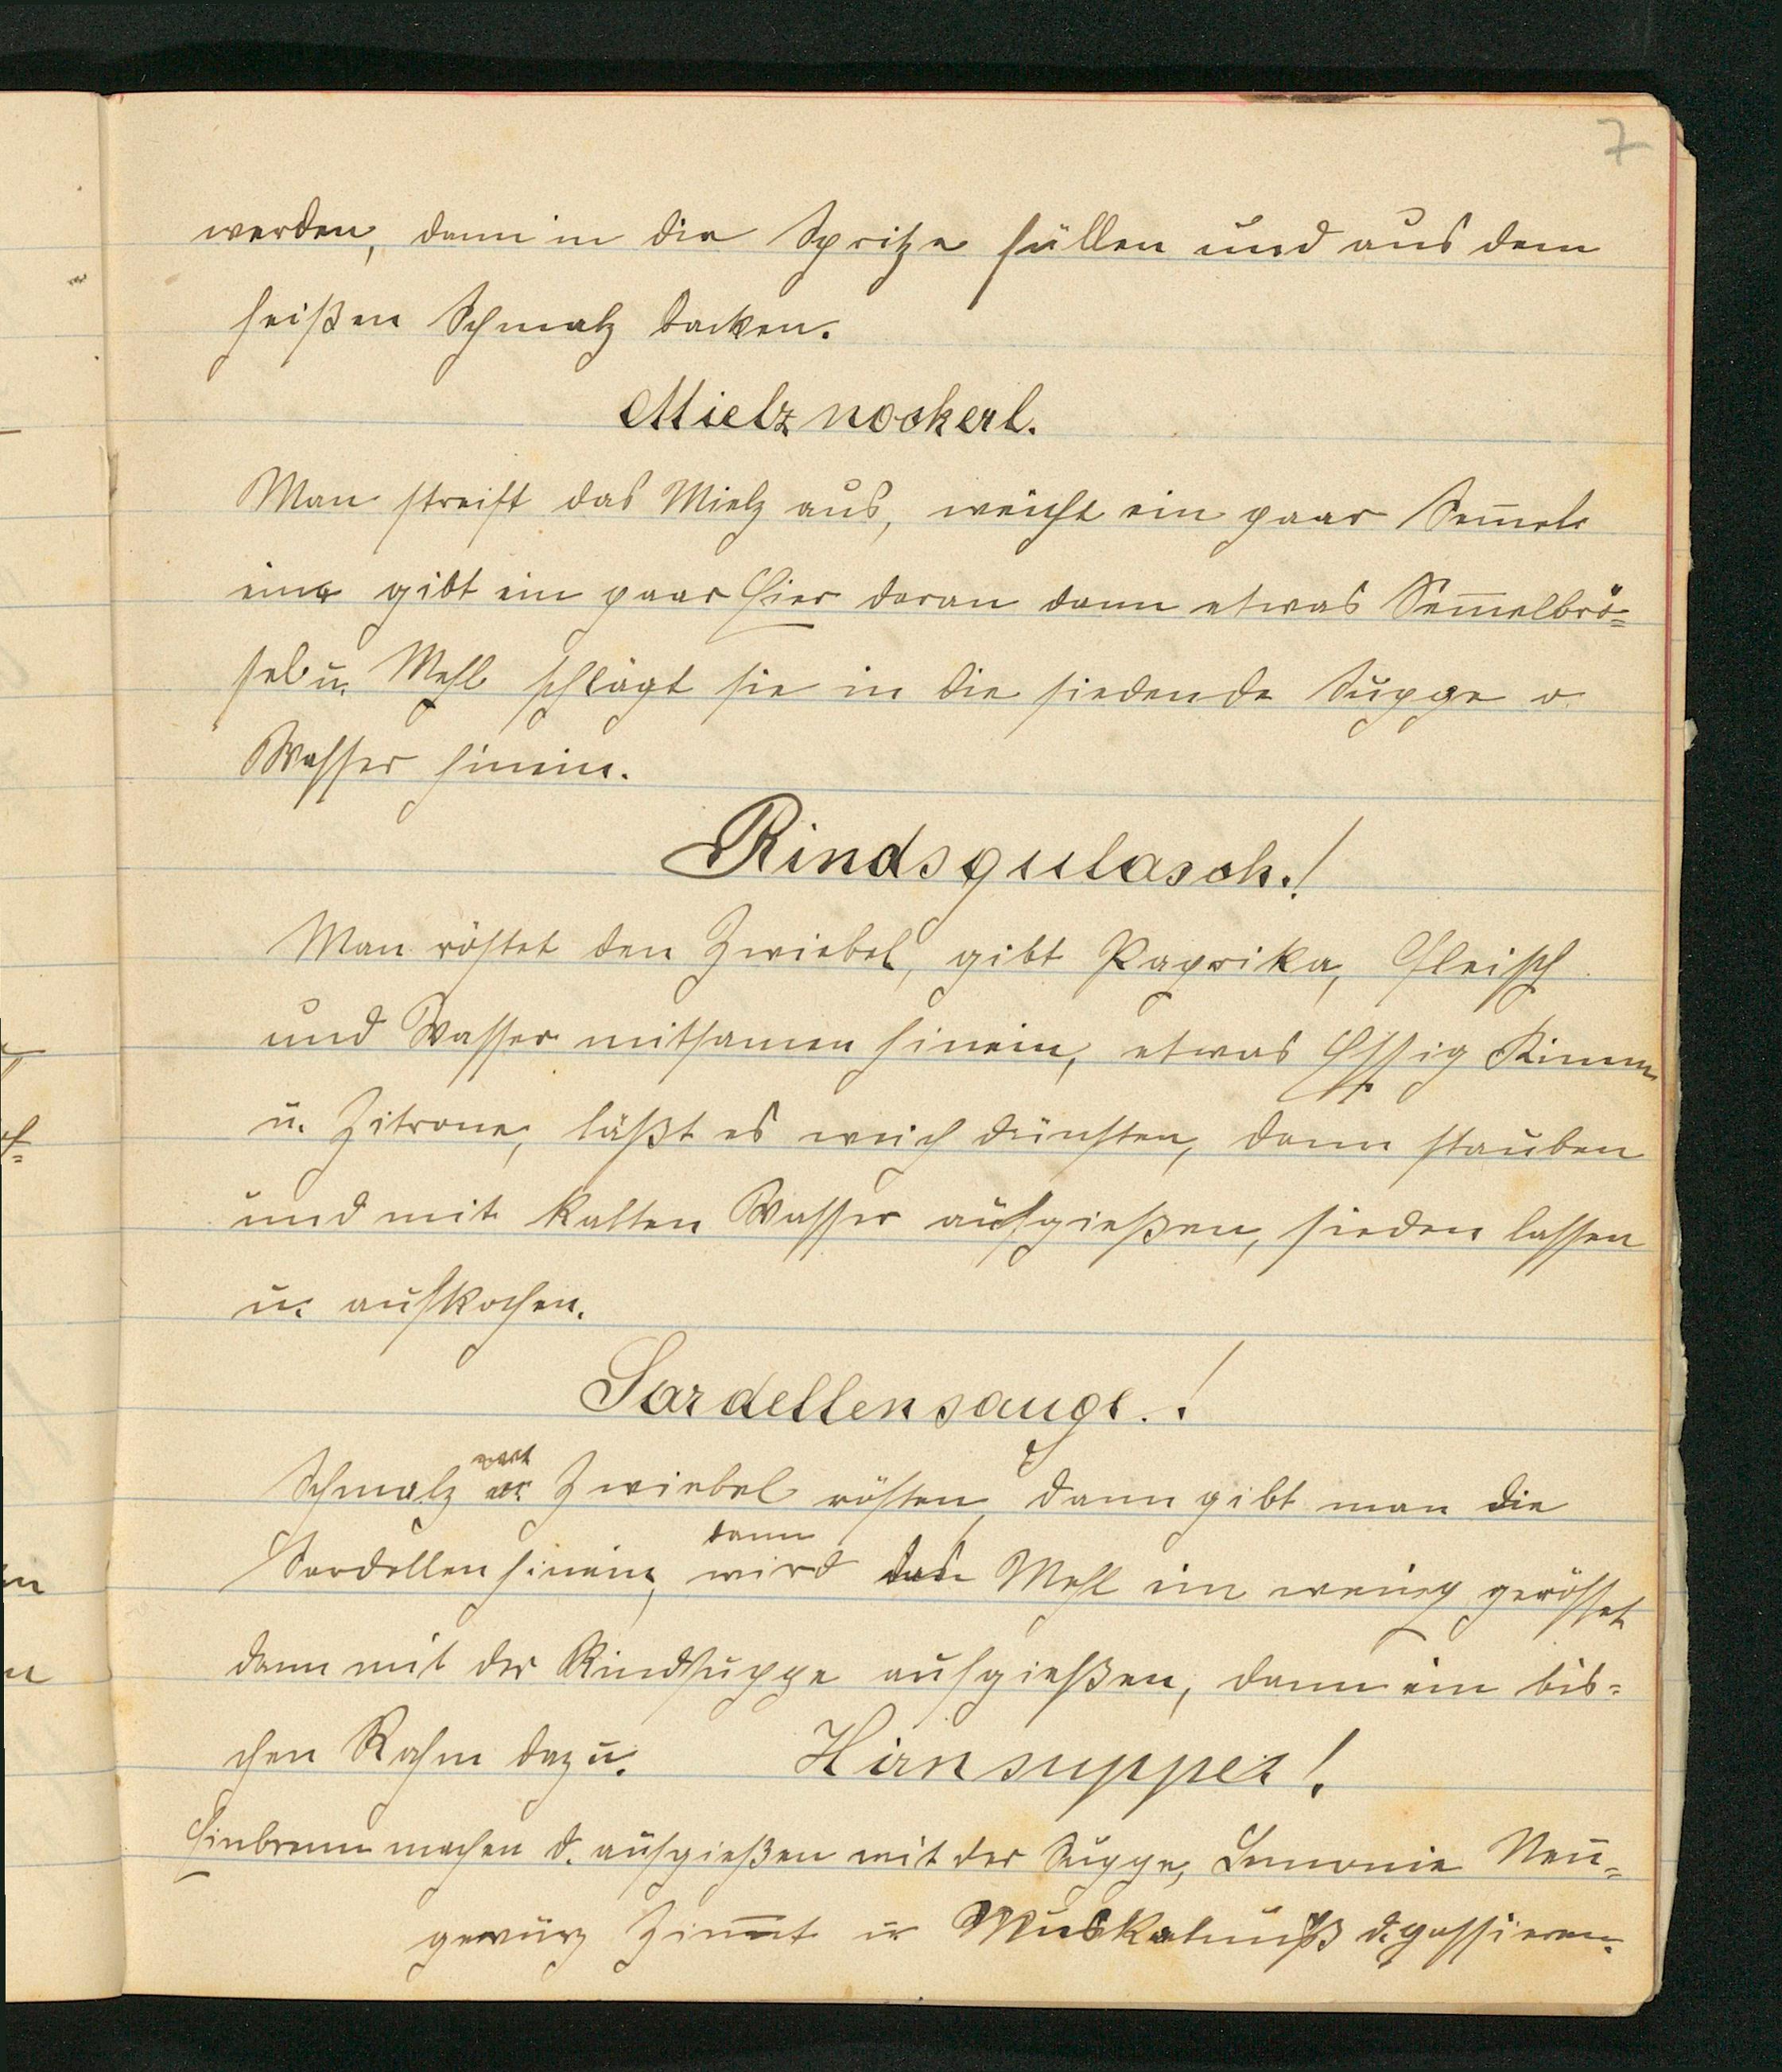 7
werden, dann in die Spritze füllen und aus dem
heißen Schmalz backen.
Mielznockerl.
Man streift das Mielz aus, weicht ein paar Sem̅els
ein gibt ein paar Eier daran dann etwas Sem̅elbrö=
sel u. Mehl schlägt sie in die siedende Suppe o
Wasser hinein.
Rindsgulasch.!
Man röstet den Zwiebel, gibt Paprika, Fleisch
und Wasser mitsamen hinein, etwas Essig Kimm
u. Zitrone, läßt es weich dünsten, dann stauben
und mit kalten Wasser aufgießen, sieden lassen
u. aufkochen.
Sardellensauge.!
Schmalz Zwiebel rösten, dann gibt man die
dann
Sardellen hinein, wird das Mehl ein wenig geröstet
dann mit der Rindsuppe aufgießen, dann ein bis=
chen Rahm dazu. Hirnsuppe!
Einbrenn machen d. aufgießen mit der Suppe, Lemonie Neu=
gewürz Zim̅t u Muskalnuß d. passieren.